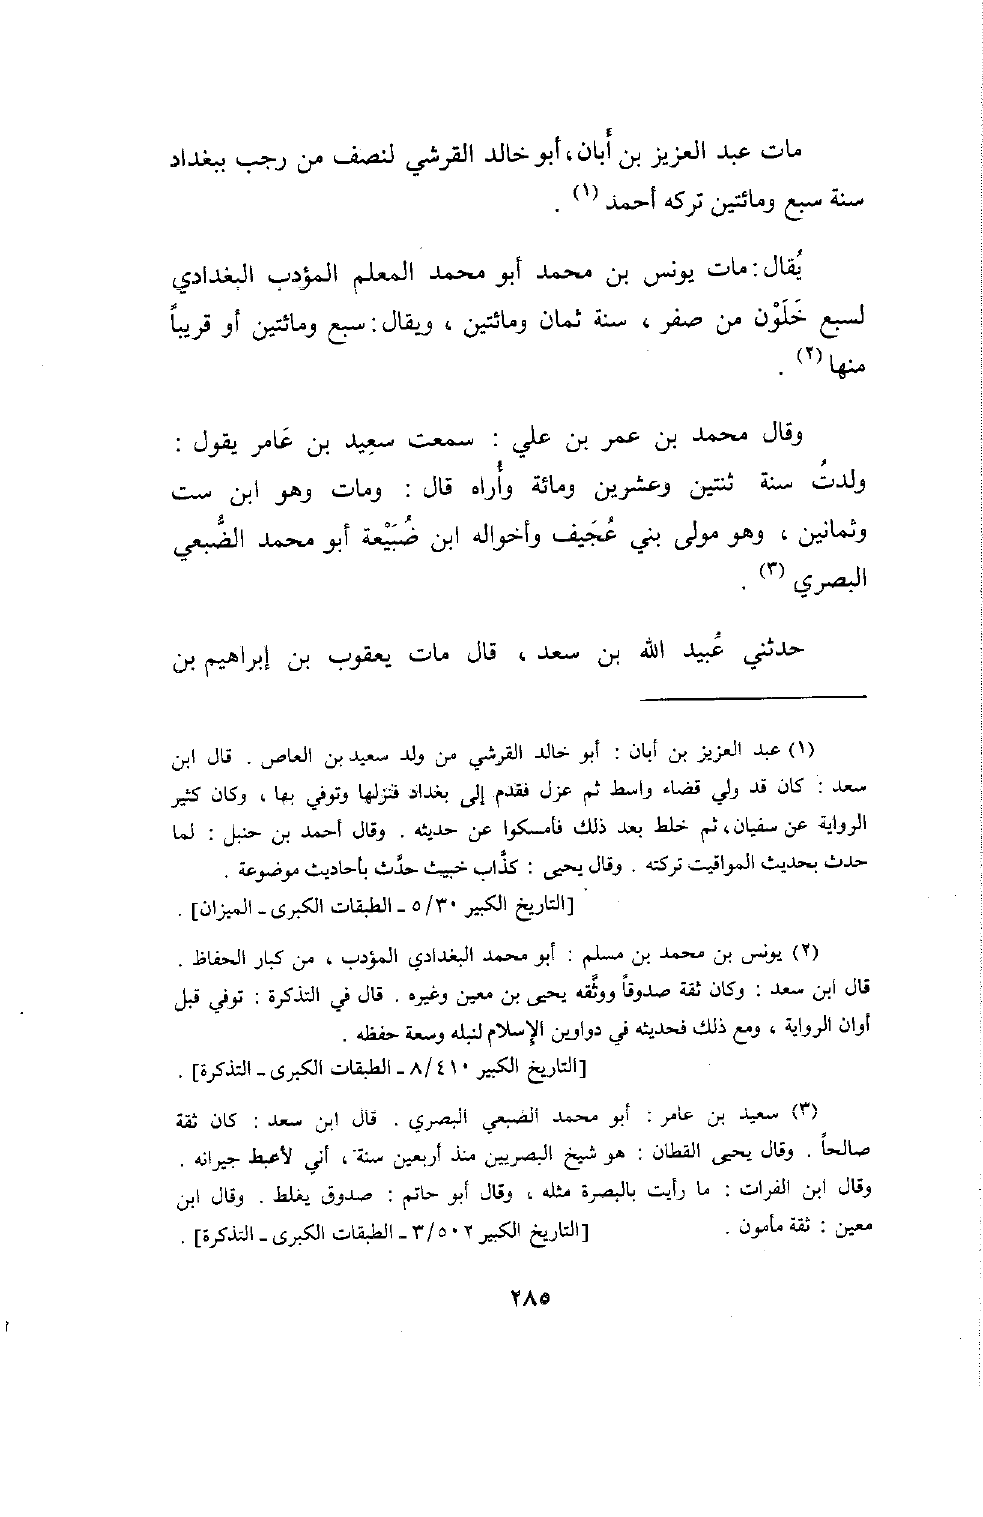 مات عبد العزيز بن أُبان، أبو خالد القرشي لنصف من رجب ببغداد
سنة سبع ومائتين تركه أحمد (١) .
يُقال: مات يونس بن محمد أبو محمد المعلم المؤدب البغدادي
لسبع خَلَوْن من صفر ، سنة ثمان ومائتين ، ويقال: سبع ومائتين أو قريباً
منها (٢) .
وقال محمد بن عمر بن علي : سمعت سعِيد بن عَامر يقول :
ولدتُ سنة ثنتين وعشرين ومائة وأُراه قال : ومات وهو ابن ست
وثمانين ، وهو مولى بني عُجَيف وأخواله ابن ضُبَيْعة أبو محمد الضُّبعي
البصري (٣) .
حدثني عُبيد الله بن سعد ، قال مات يعقوب بن إبراهيم بن
(١) عبد العزيز بن أبان : أبو خالد القرشي من ولد سعيد بن العاص . قال ابن
سعد : كان قد ولي قضاء واسط ثم عزل فقدم إلى بغداد فنزلها وتوفي بها ، وكان كثير
الرواية عن سفيان، ثم خلط بعد ذلك فأمسكوا عن حديثه . وقال أحمد بن حنبل : لما
حدث بحديث المواقيت تركته . وقال يحيى : كذَّاب خبيث حدَّث بأحاديث موضوعة .
[التاريخ الكبير ٥/٣٠ ـ الطبقات الكبرى ـ الميزان] .
(٢) يونس بن محمد بن مسلم : أبو محمد البغدادي المؤدب ، من كبار الحفاظ .
قال ابن سعد : وكان ثقة صدوقاً ووثَّقه يحيى بن معين وغيره . قال في التذكرة : توفي قبل
أوان الرواية ، ومع ذلك فحديثه في دواوين الإسلام لنبله وسعة حفظه .
[التاريخ الكبير ٨/٤١٠ ـ الطبقات الكبرى ـ التذكرة] .
(٣) سعيد بن عامر : أبو محمد الضبعي البصري . قال ابن سعد : كان ثقة
صالحاً . وقال يحيى القطان : هو شيخ البصريين منذ أربعين سنة ، أني لأغبط جيرانه .
وقال ابن الفرات : ما رأيت بالبصرة مثله ، وقال أبو حاتم : صدوق يغلط . وقال ابن
معين : ثقة مأمون . [التاريخ الكبير ٣/٥٠٢ ـ الطبقات الكبرى ـ التذكرة] .
٢٨٥